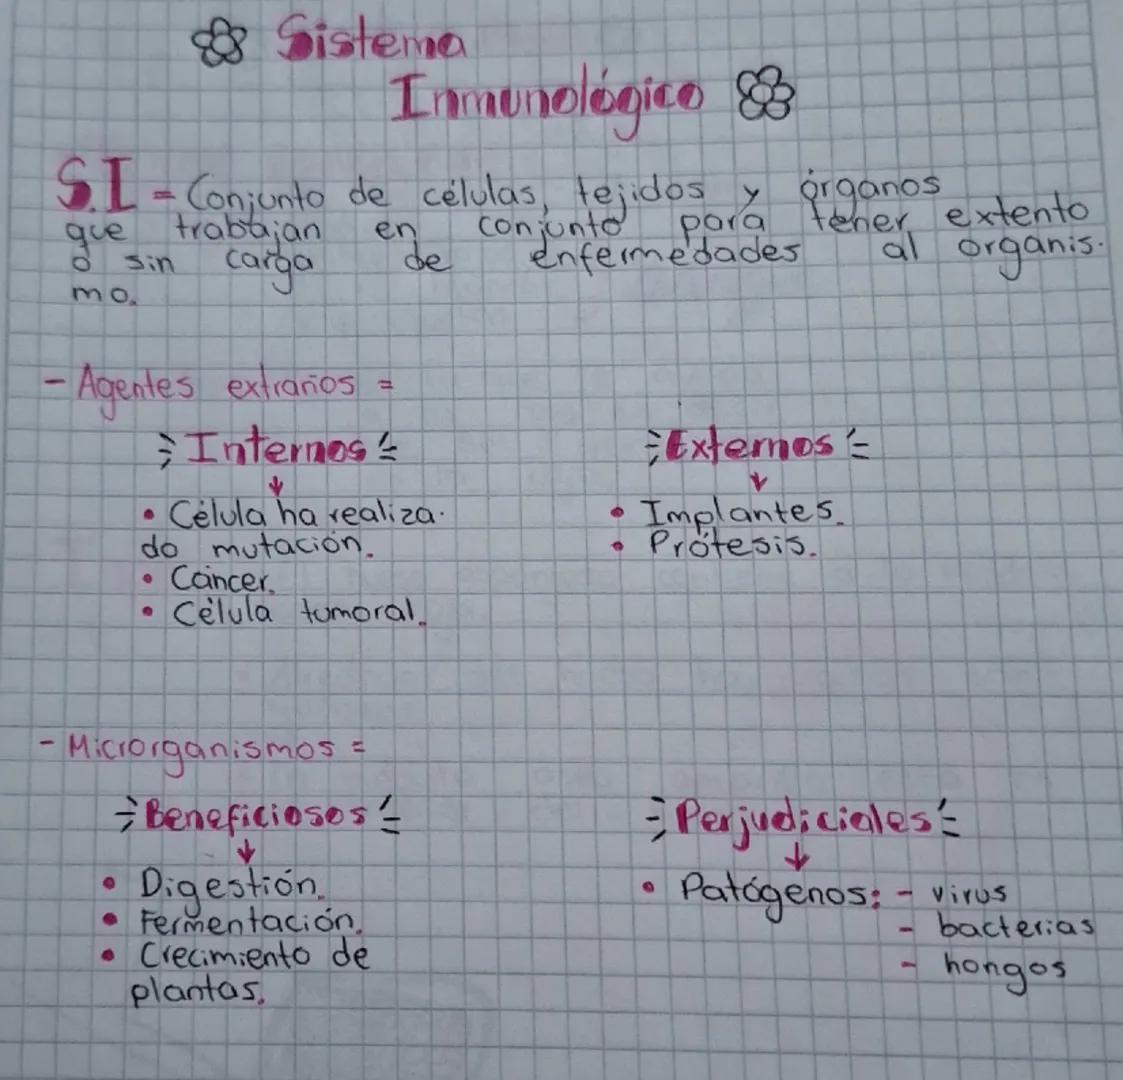 Sistema
Inmunológico
S.I = Conjunto de células, tejidos y órganos
que trabajan en conjunto para tener extento
o sin carga de enfermedades al organis-
mo.
- Agentes extraños =
Internos
Externos
• Célula ha realiza-
do mutación.
• Cáncer.
• Célula tumoral.
• Implantes.
• Prótesis.
- Microrganismos =
Beneficiosos
Perjudiciales
• Digestión.
• Fermentación.
• Crecimiento de
plantas.
• Patógenos: - virus
- bacterias
- hongos